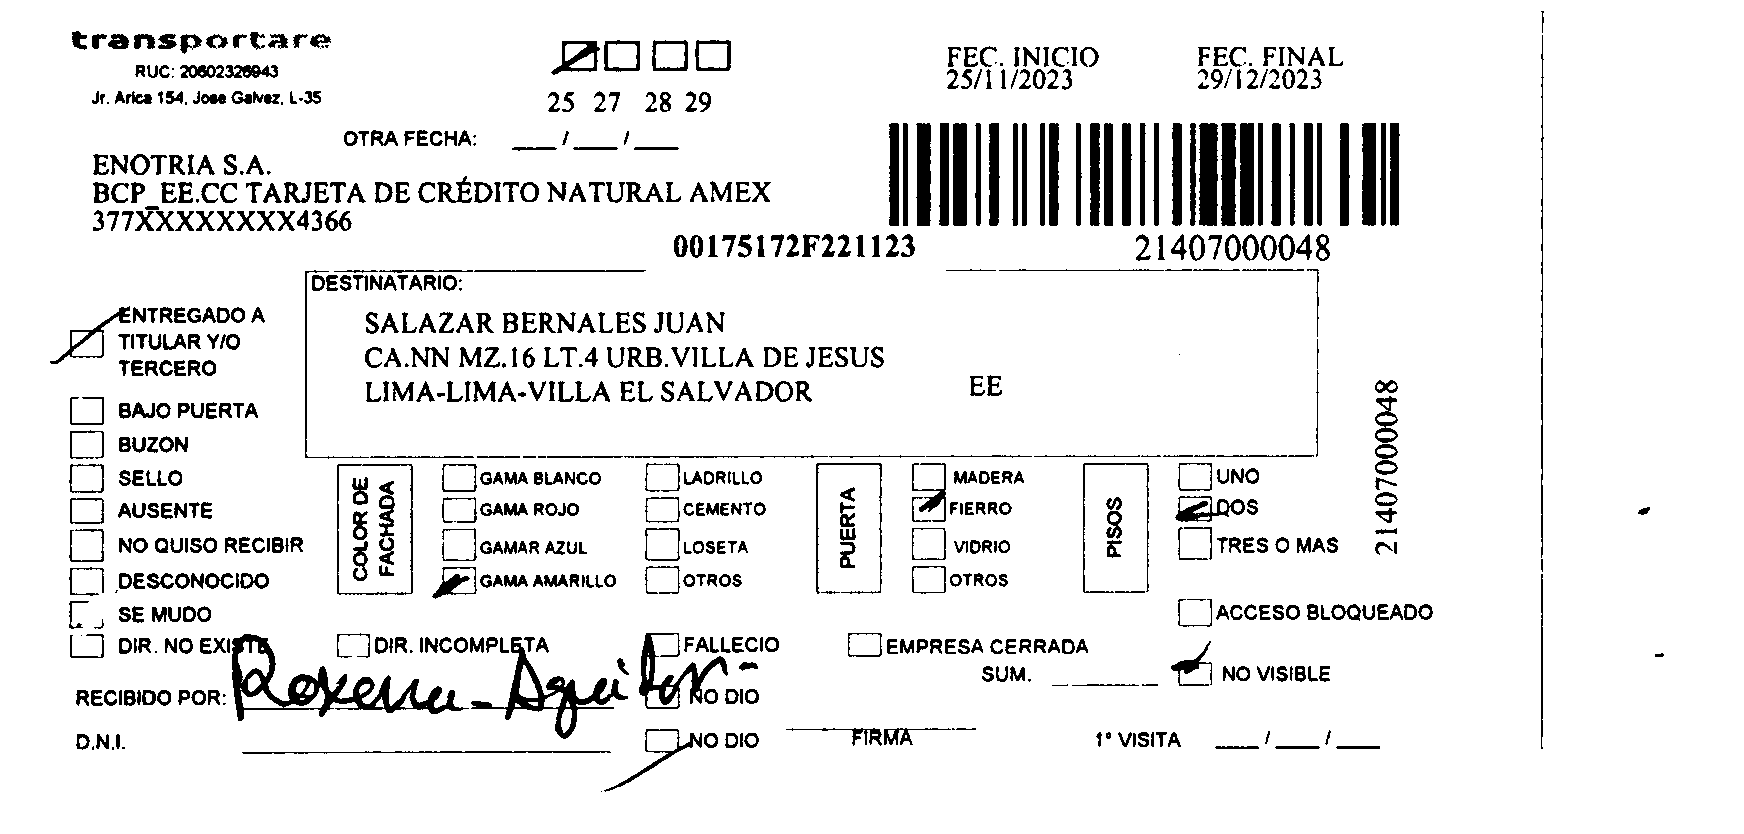 transportare
RUC: 20602326943
Jr. Arica 154, Jose Galvez, L-35
25 27 28 29
FEC. INICIO
25/11/2023
FEC. FINAL
29/12/2023
OTRA FECHA: ___/___/___
ENOTRIA S.A.
BCP_EE.CC TARJETA DE CRÉDITO NATURAL AMEX
377XXXXXXXX4366
00175172F221123
21407000048
DESTINATARIO:
SALAZAR BERNALES JUAN
CA.NN MZ.16 LT.4 URB.VILLA DE JESUS
LIMA-LIMA-VILLA EL SALVADOR
EE
21407000048
ENTREGADO A
TITULAR Y/O
TERCERO
BAJO PUERTA
BUZON
SELLO
AUSENTE
NO QUISO RECIBIR
DESCONOCIDO
SE MUDO
DIR. NO EXISTE
COLOR DE
FACHADA
GAMA BLANCO
GAMA ROJO
GAMAR AZUL
GAMA AMARILLO
LADRILLO
CEMENTO
LOSETA
OTROS
PUERTA
MADERA
FIERRO
VIDRIO
OTROS
PISOS
UNO
DOS
TRES O MAS
ACCESO BLOQUEADO
DIR. INCOMPLETA
FALLECIO
EMPRESA CERRADA
SUM. ________
NO VISIBLE
RECIBIDO POR: Roxena - Aguilar
NO DIO
D.N.I.
NO DIO
FIRMA
1° VISITA ___/___/___